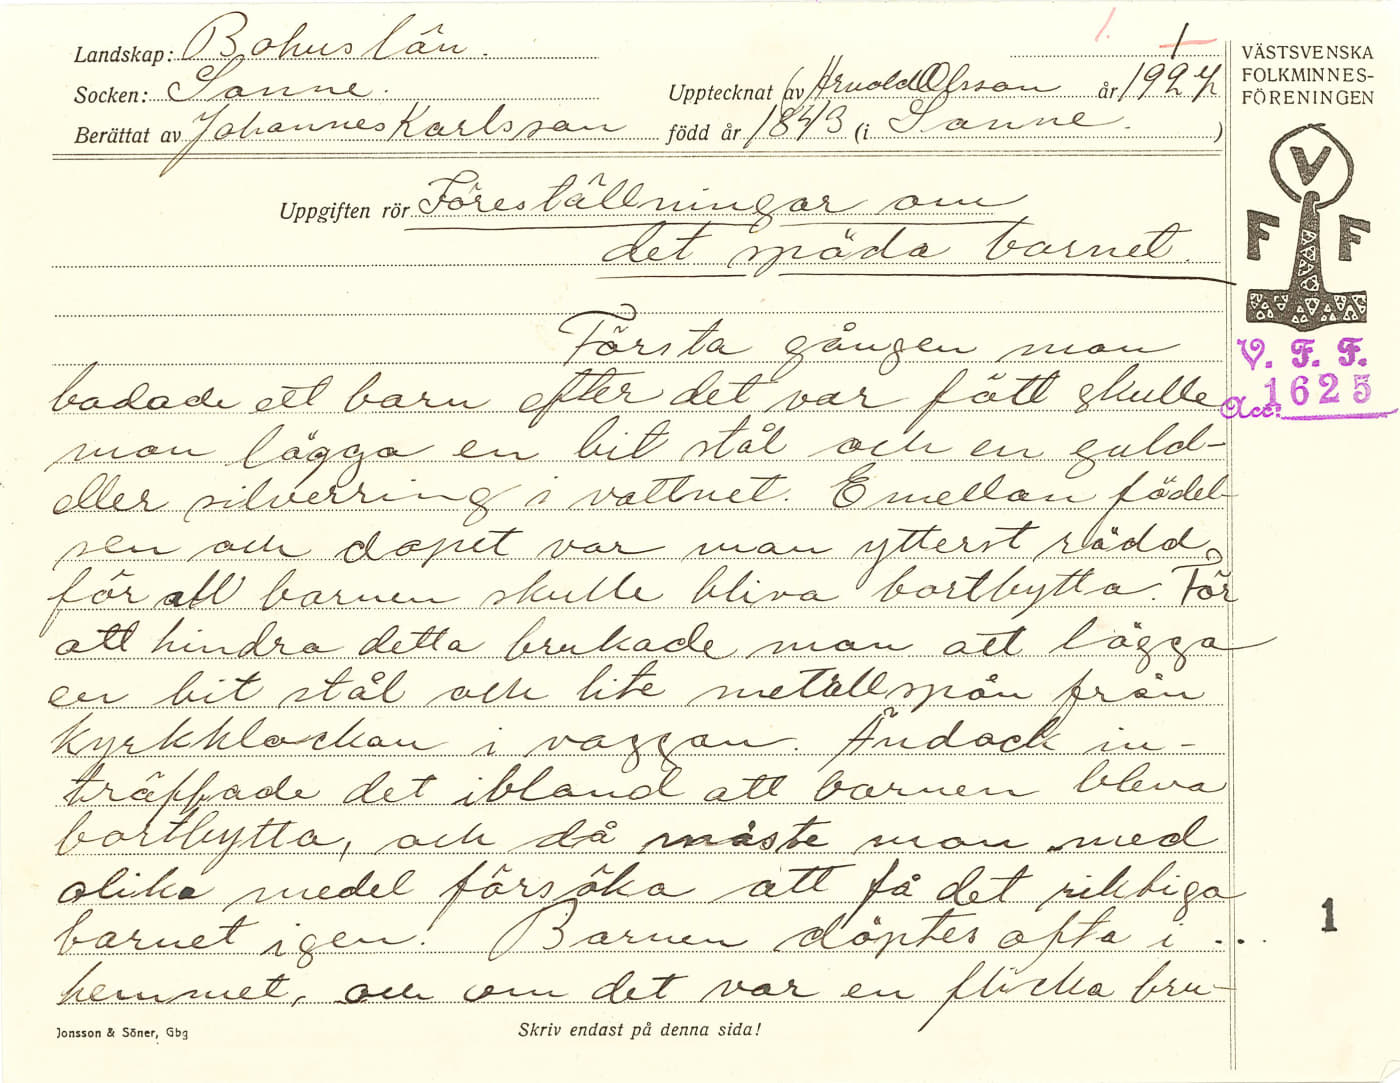 1.
Landskap: Bohuslän. 1
Socken: Sanne. Upptecknat av Arnold Olsson år 1927
Berättat av Johannes Karlsson född år 1843 (i Sanne. )
VÄSTSVENSKA
FOLKMINNES-
FÖRENINGEN
V
F F
Uppgiften rör Föreställningar om
det späda barnet.
V. F. F.
Acc: 1625
Första gången man
badade ett barn efter det var fött skulle
man lägga en bit stål och en guld-
eller silverring i vattnet. Emellan födel-
sen och dopet var man ytterst rädd
för att barnen skulle bliva bortbytta. För
att hindra detta brukade man att lägga
en bit stål och lite metallspån från
kyrkklockan i vaggan. Ändock in-
träffade det ibland att barnen bleva
bortbytta, och då måste man med
olika medel försöka att få det riktiga
barnet igen. Barnen döptes ofta i
hemmet, och om det var en flicka bru-
1
Jonsson & Söner, Gbg Skriv endast på denna sida!